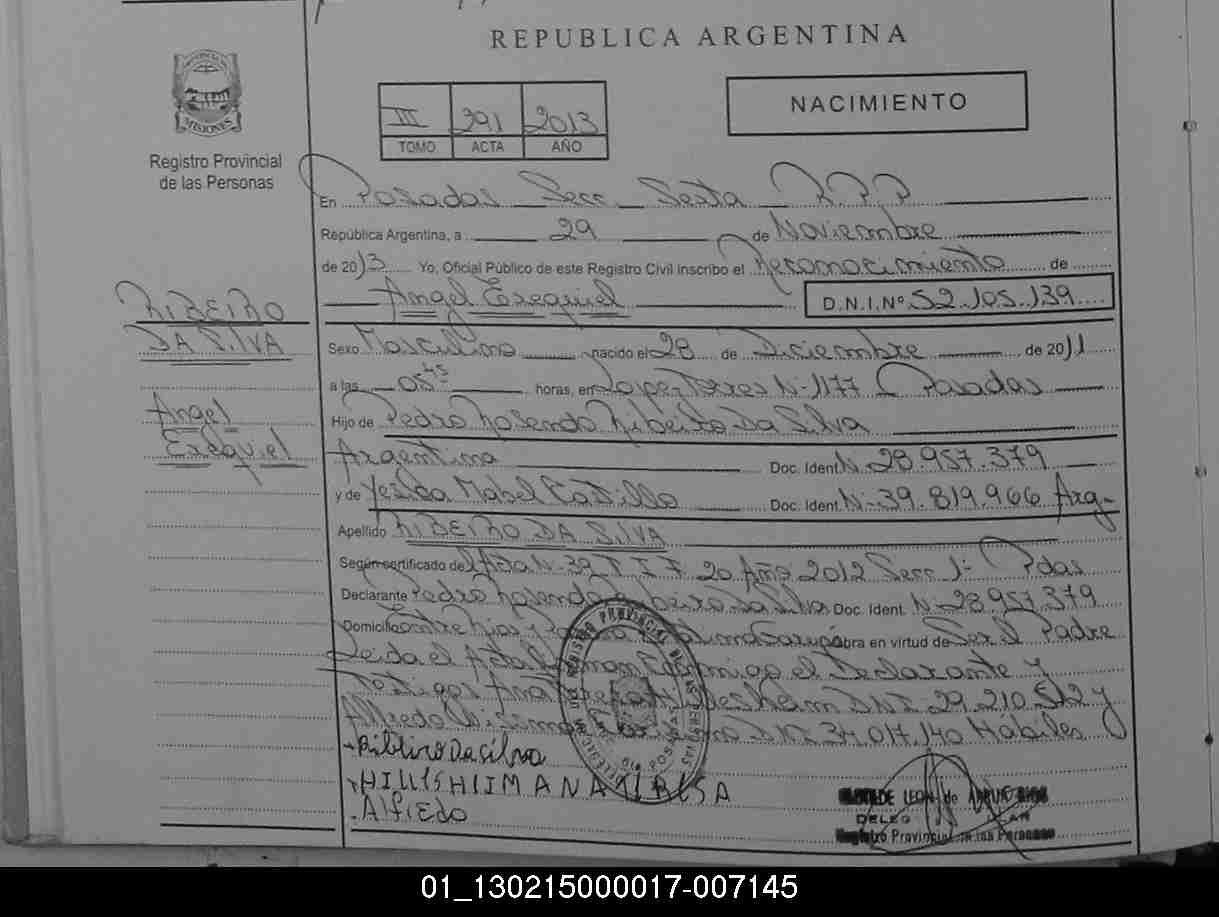 REPUBLICA ARGENTINA
PROVINCIA DE
MISIONES
Registro Provincial
de las Personas
III 291 2013
TOMO ACTA AÑO
NACIMIENTO
En Posadas Secc. Sexta R.P.P
República Argentina, a 29 de Noviembre
de 2013 Yo, Oficial Público de este Registro Civil inscribo el Reconocimiento de
Angel Ezequiel D.N.I.Nº 52.105.139
RIBEIRO
DA SILVA
Angel
Ezequiel
Sexo Masculino nacido el 28 de Diciembre de 2011
a las 05 45 horas, en Lopez Torres Nº 1177 Posadas
Hijo de Pedro Rosendo Ribeiro Da Silva
Argentina Doc. Ident. Nº 28.957.379
y de Yesica Mabel Castillo Doc. Ident. Nº 39.819.966 Arg-
Apellido RIBEIRO DA SILVA
Según certificado del Acta Nº 39 T I F 20 Año 2012 Secc 1º Pdas
Declarante Pedro Rosendo Ribeiro Da Silva Doc. Ident. Nº 28.957.379
Domicilio Entre Rios y Garupá obra en virtud de Ser el Padre
Leida el Acta Firman Conmigo el Declarante y
Testigos Ana DNI 29.210.512 y
Alfredo DNI 34.017.140 Hábiles
- Ribeiro Da silva
HILLISHIIM ANA
. Alfredo
REGISTRO PROVINCIAL DE LAS PERSONAS
POSADAS
LEON de
DELEG
Registro Provincial de las Personas
01_130215000017-007145